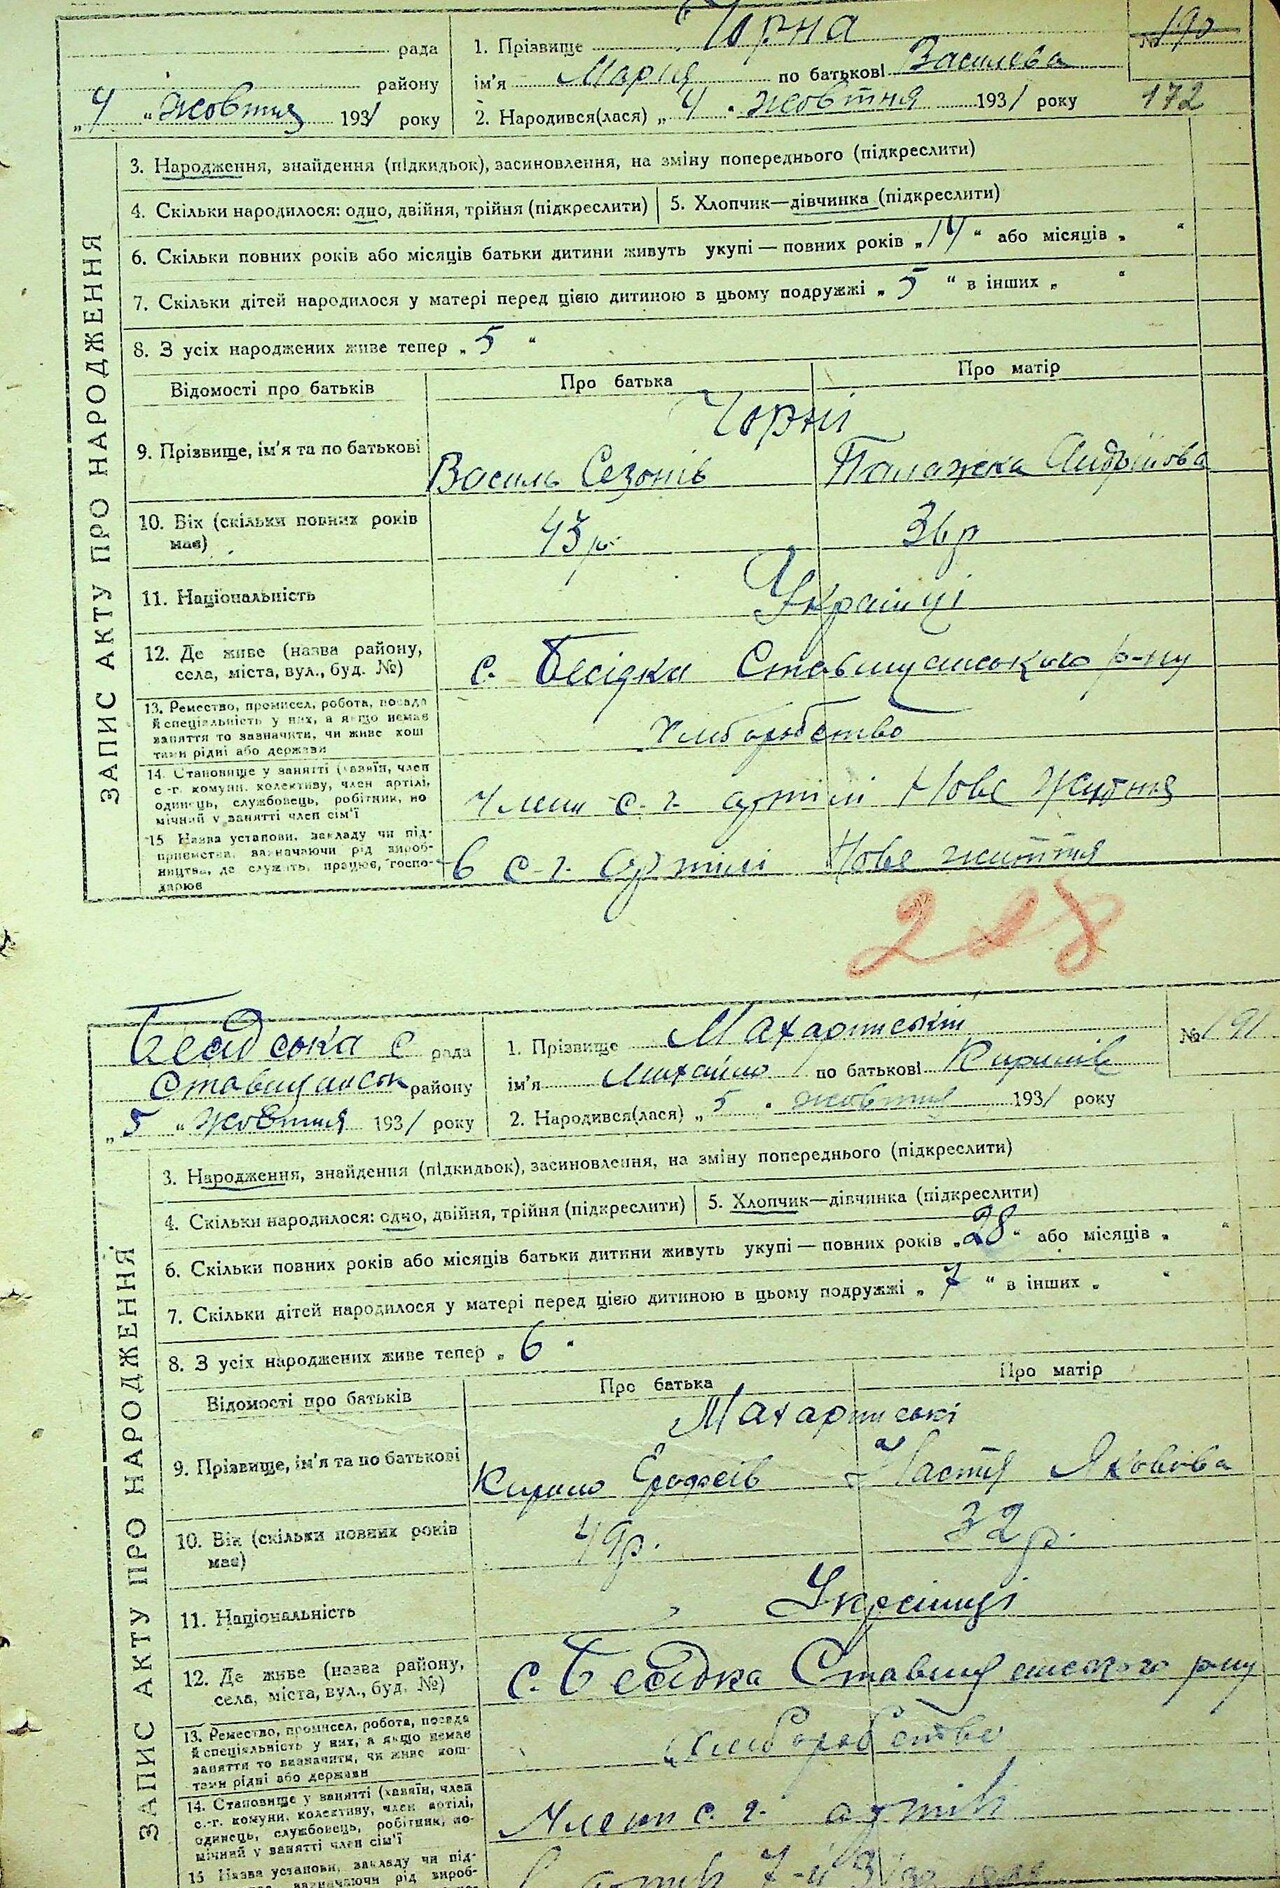 рада
району
„4 “ жовтня 1931 року
1. Прізвище Чорна
ім'я Марія по батькові Василева
2. Народився(лася) „ 4 “ жовтня 1931 року
№ 190
172
ЗАПИС АКТУ ПРО НАРОДЖЕННЯ
3. Народження, знайдення (підкидьок), засиновлення, на зміну попереднього (підкреслити)
4. Скільки народилося: одно, двійня, трійня (підкреслити) 5. Хлопчик—дівчинка (підкреслити)
6. Скільки повних років або місяців батьки дитини живуть укупі — повних років „ 14 “ або місяців „ “
7. Скільки дітей народилося у матері перед цією дитиною в цьому подружжі „ 5 “ в інших „ “
8. З усіх народжених живе тепер „ 5 “
Відомості про батьків Про батька Про матір
Чорні
9. Прізвище, ім'я та по батькові Василь Сезонів Палажка Андріїова
10. Вік (скільки повних років має) 43 р. 36 р
11. Національність Українці
12. Де живе (назва району, села, міста, вул., буд. №) с. Бесідки Ставищанського р-ну
13. Ремество, промисел, робота, посада
й спеціяльність у них, а якщо немає
заняття то зазначити, чи живе кош
тами рідні або держави
Хліборобство
14. Становище у занятті (хазяїн, член
с.-г. комуни, колективу, член артілі,
одинець, службовець, робітник, по
мічний у занятті член сім'ї
Члени с. г. артілі Нове життя
15 Назва установи, закладу чи під-
приємства, вазначаючи рід вироб-
ництва, де служить, працює, госпо-
дарює
в с-г. артілі Нове життя
228
Бесідська с рада
Ставищанськ району
„ 5 “ жовтня 1931 року
1. Прізвище Махаринський
ім'я Михайло по батькові Кирилів
2. Народився(лася) „ 5 “ жовтня 1931 року
№ 191
ЗАПИС АКТУ ПРО НАРОДЖЕННЯ
3. Народження, знайдення (підкидьок), засиновлення, на зміну попереднього (підкреслити)
4. Скільки народилося: одно, двійня, трійня (підкреслити) 5. Хлопчик—дівчинка (підкреслити)
6. Скільки повних років або місяців батьки дитини живуть укупі — повних років „ 28 “ або місяців „ “
7. Скільки дітей народилося у матері перед цією дитиною в цьому подружжі „ 7 “ в інших „ “
8. З усіх народжених живе тепер „ 6 “
Відомості про батьків Про батька Про матір
Махаринські
9. Прізвище, ім'я та по батькові Кирило Єрофеїв Настя Яковова
10. Вік (скільки повних років має) 49 р. 32 р.
11. Національність Українці
12. Де живе (назва району, села, міста, вул., буд. №) с. Бесідка Ставищанського р-ну
13. Ремество, промисел, робота, посада
й спеціяльність у них, а якщо немає
заняття то визначити, чи живе кош-
тами рідні або держави
Хліборобство
14. Становище у занятті (хазяїн, член
с.-г. комуни, колективу, член артілі,
одинець, службовець, робітник, по-
мічний у занятті член сім'ї
Члени с. г. артілі
15 Назва установи, закладу чи під-
вазначаючи рід вироб-